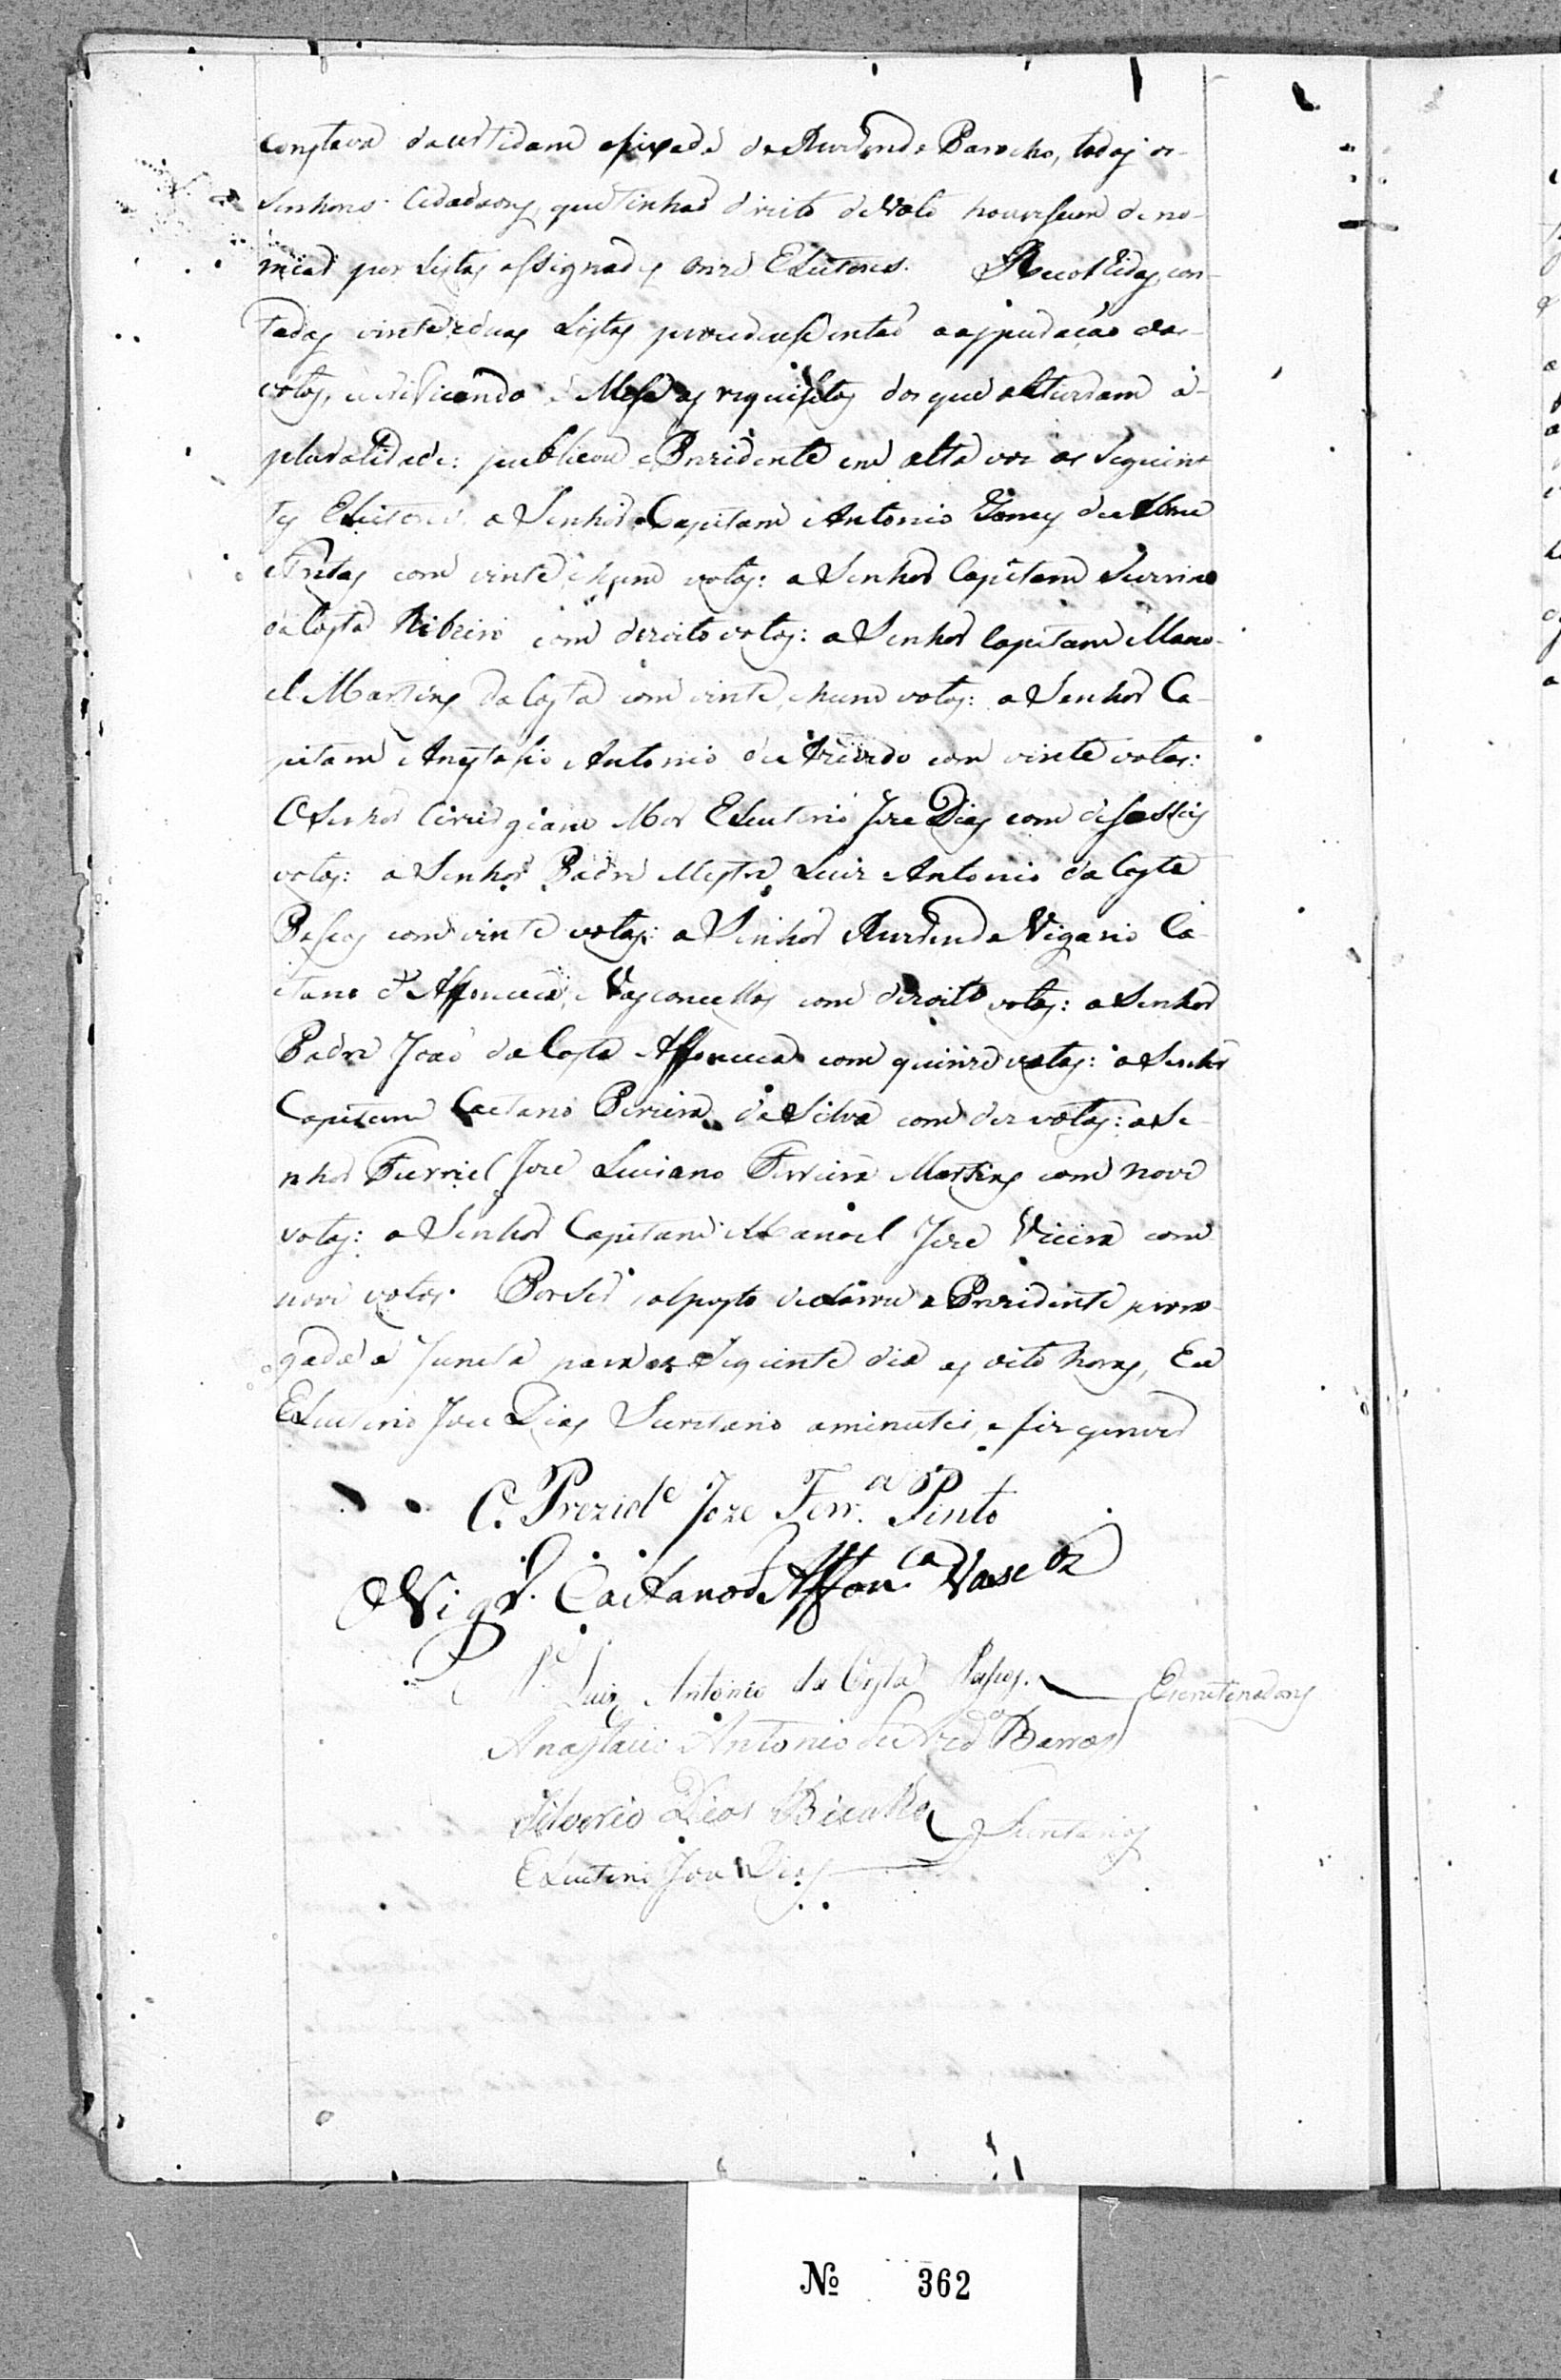 constava da certidam afixada do Reverendo Parocho, todos os
Senhores Cidadaons, que tinhaõ direito de Voto houvessem de no-
mear por Listas assignadas onze Eleitores. Recolhidas, con-
tadas vinte e duas Listas procedeuse entaõ a appuraçaõ dos
votos, e verificando a Mesa os requisitos dos que obtiveram á
pluralidade: publicou o Prezidente em alta voz os Seguin-
tes Eleitores. o Senhor Capitam Antonio Gomes de Abreu
e Freitas com vinte e hum votos: o Senhor Capitam Severino
da Costa Ribeiro com dezoito votos: o Senhor Capitam Mano-
el Martins da Costa com vinte, e hum votos: o Senhor Ca-
pitam Anastasio Antonio de Azevedo com vinte votos:
O Senhor Cirurgiam Mor Eleuterio Joze Dias com desasseis
votos: o Senhor Padre Mestre Luiz Antonio da Costa
Passos com vinte votos: o Senhor Reverendo Vigario Ca-
etano d'Affonceca, e Vasconcellos com dezoito votos: o Senhor
Padre Joaõ da Costa Affonceca com quinze votos: o Senhor
Capitam Caetano Pereira da Silva com dez votos: o Se-
nhor Furriel Joze Luciano Ferreira Martins com nove
votos: o Senhor Capitam Manoel Joze Vieira com
nove votos. Por ser sol posto declarou o Prezidente proro-
gada a Junta para o Seguinte dia as oito horas, Eu
Eleuterio Joze Dias Secretario a minutei, e fiz escrever
O. Prezide Joze Ferr.a Pinto
O Vigr.o Caetano d'Affon.ca Vasc.os
P.e Luiz Antonio da Costa Passos. Escrutinadores
Anastacio Antonio de Azd.o Barros
Silverio Dias Bicalho Secretarios
Eleuterio Joze Dias
No 362